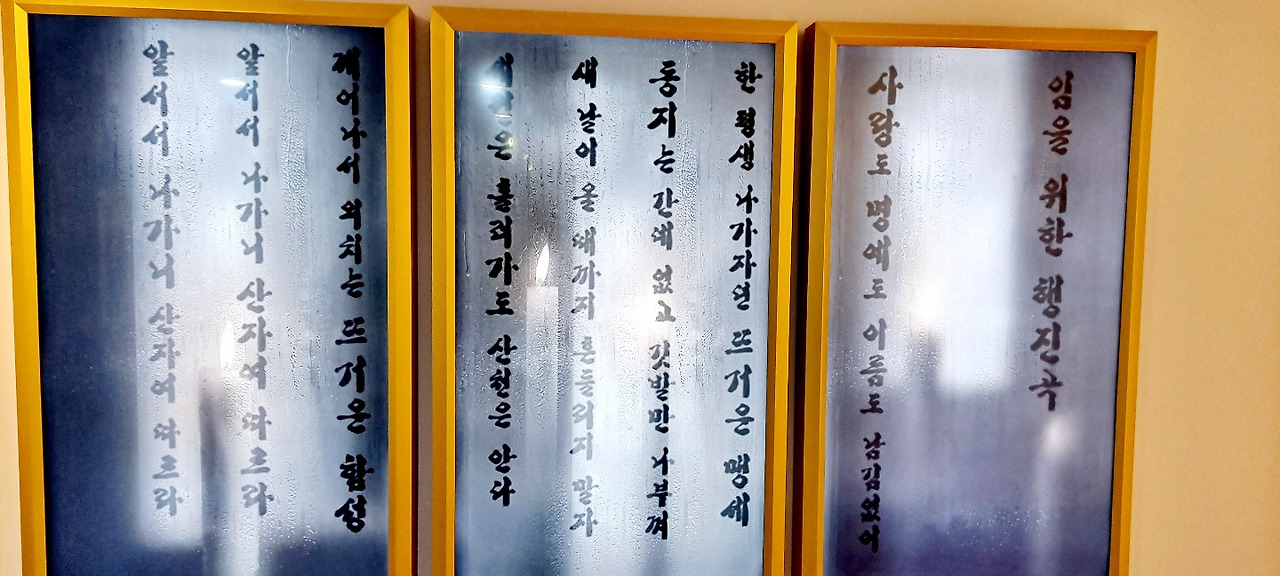 임을 위한 행진곡
사랑도 명예도 이름도 남김없이
한 평생 나가자던 뜨거운 맹세
동지는 간데 없고 깃발만 나부껴
새 날이 올 때까지 흔들리지 말자
세월은 흘러가도 산천은 안다
깨어나서 외치는 뜨거운 함성
앞서서 나가니 산자여 따르라
앞서서 나가니 산자여 따르라